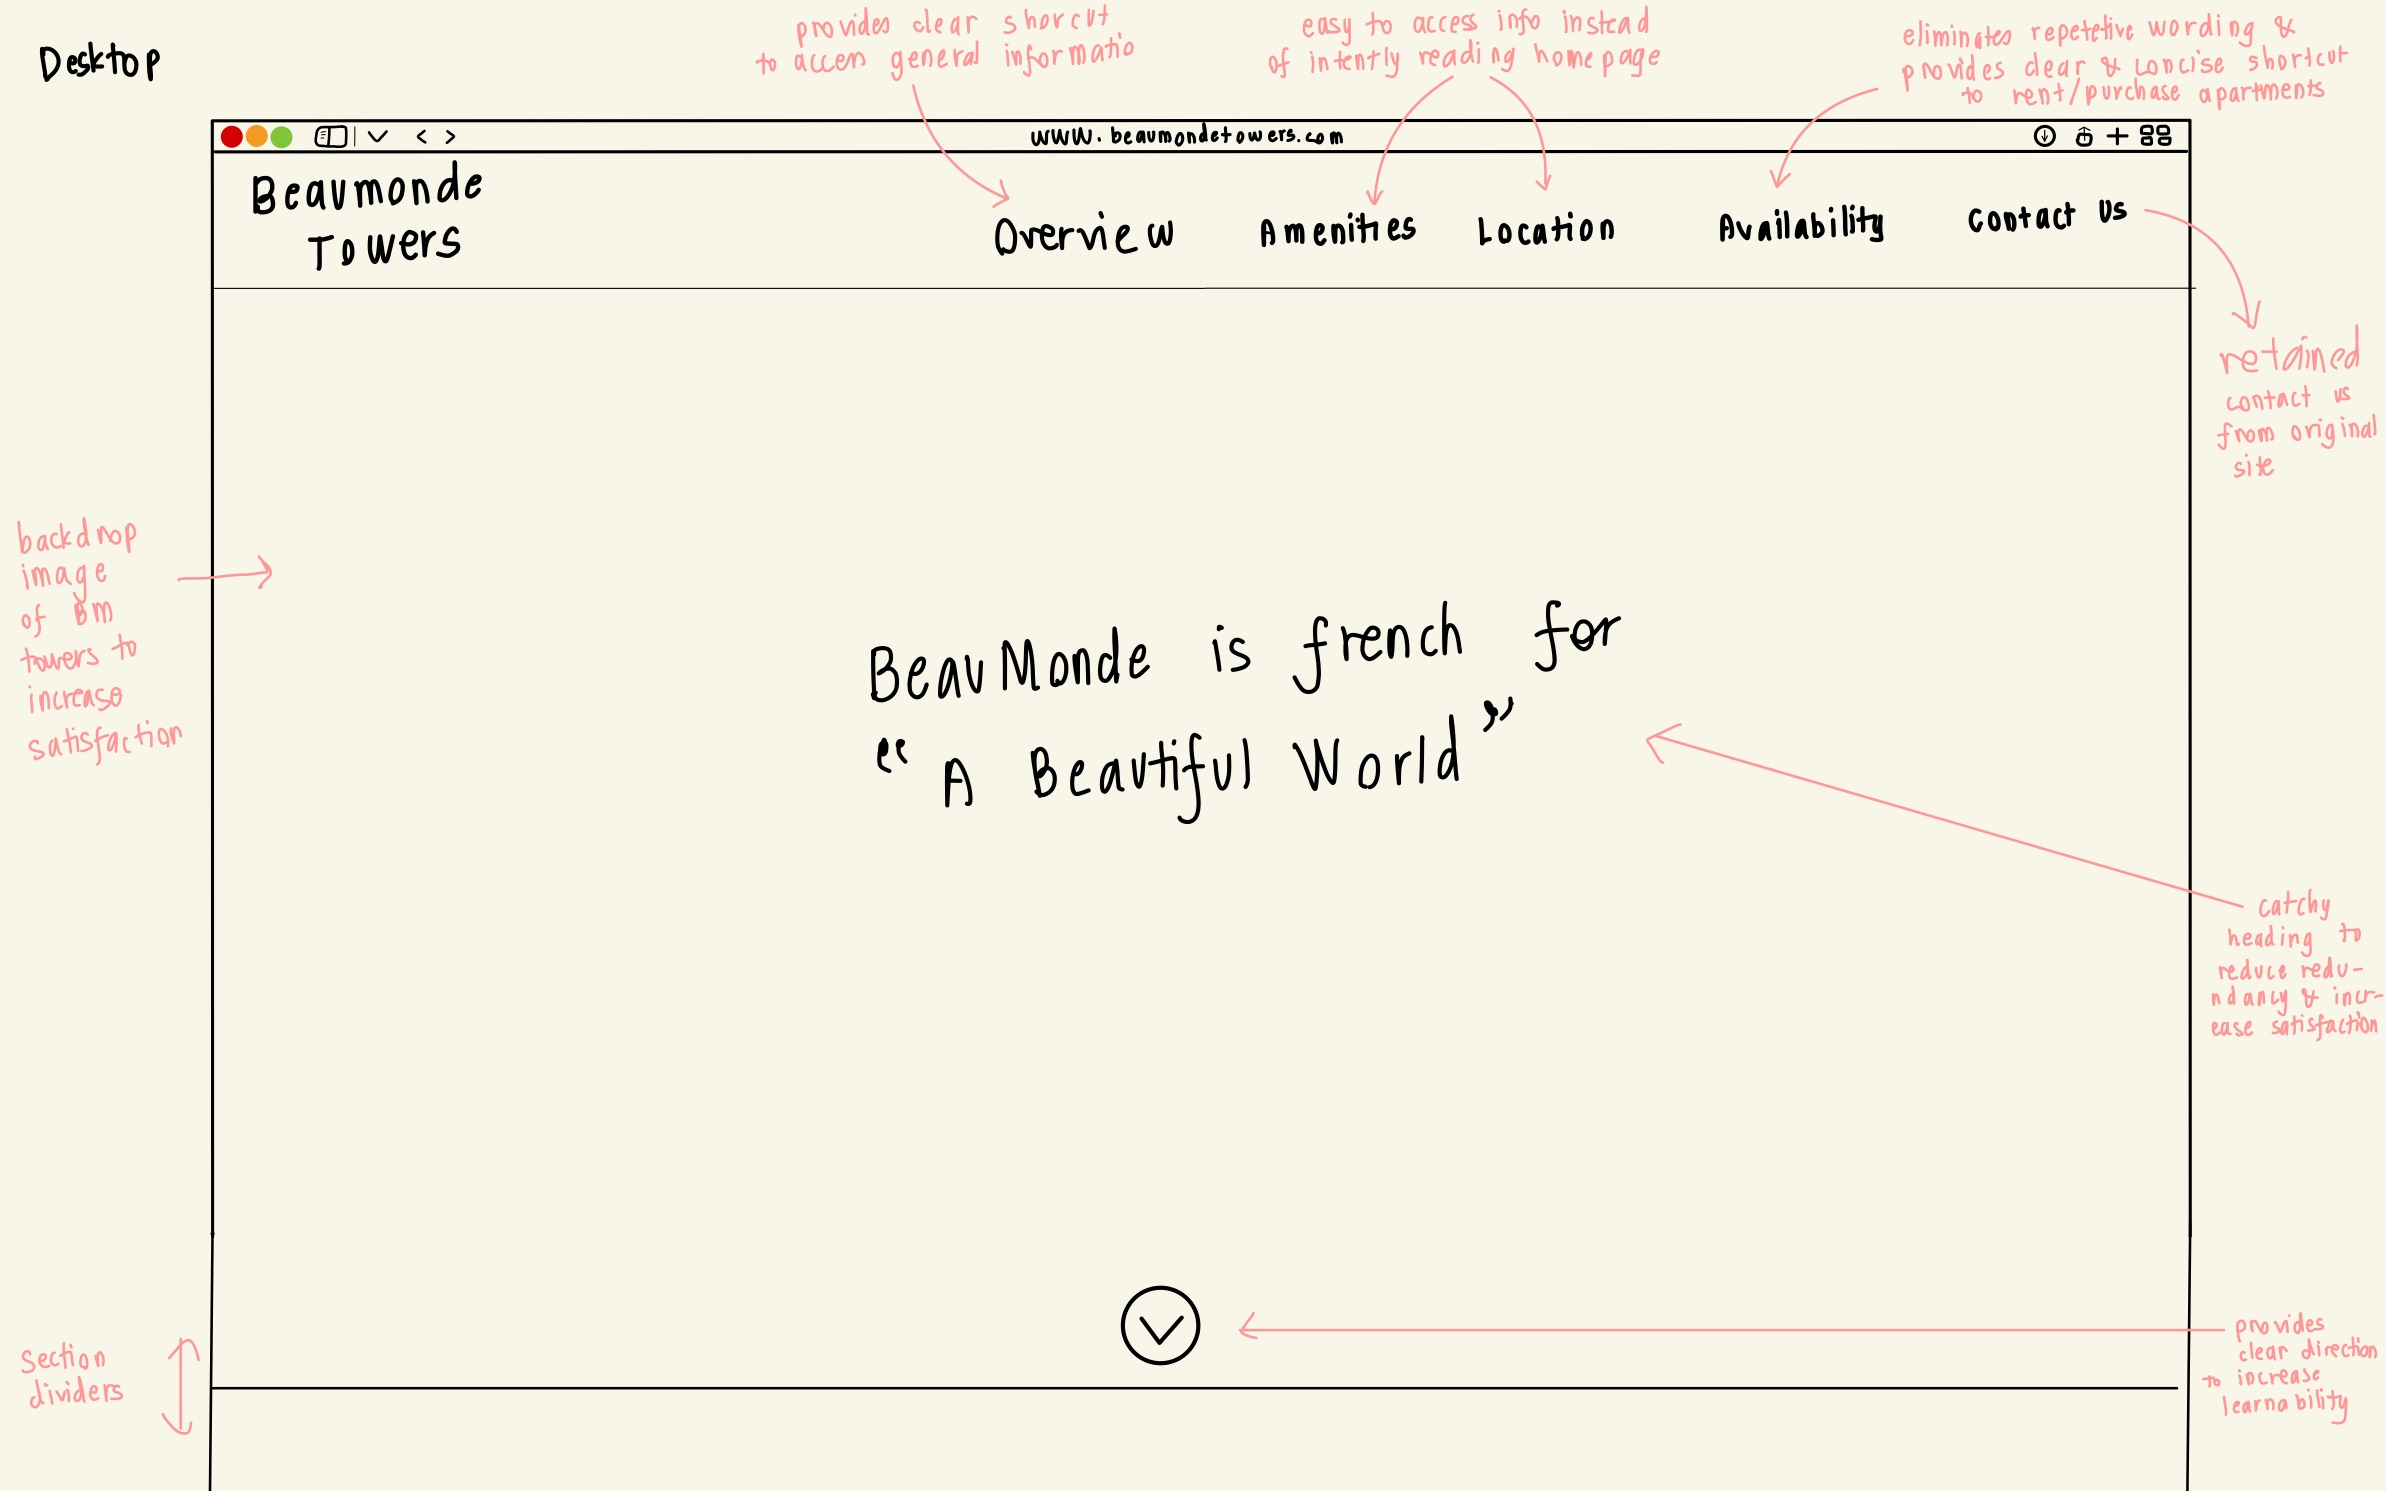 Desktop
provides clear shorcut
to access general informatio
easy to access info instead
of intently reading homepage
eliminates repetetive wording &
provides clear & concise shortcut
to rent/purchase apartments
www.beaumondetowers.com
Beaumonde
Towers
Overview
Amenities
Location
Availability
Contact Us
retained
contact us
from original
site
backdrop
image
of BM
towers to
increase
satisfaction
BeauMonde is french for
“A Beautiful World”
catchy
heading to
reduce redu-
ndancy & incr-
ease satisfaction
section
dividers
provides
clear direction
to increase
learnability